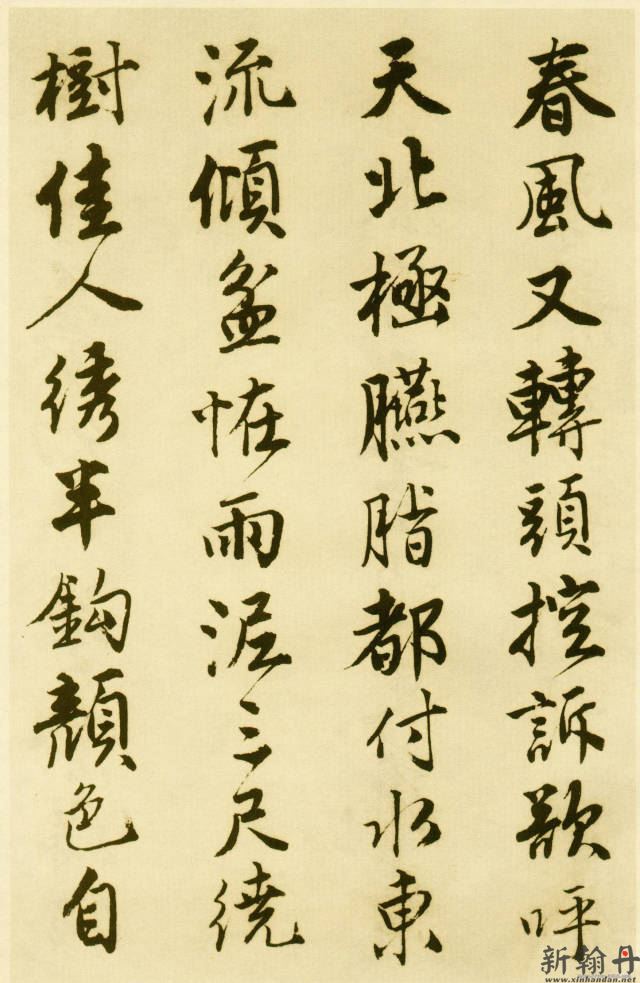 春風又轉頭控訴欲呼
天北極臙脂都付水東
流傾盆恠雨泥三尺繞
樹佳人綉半鈎顏色自
新翰丹
www.xinhandan.net